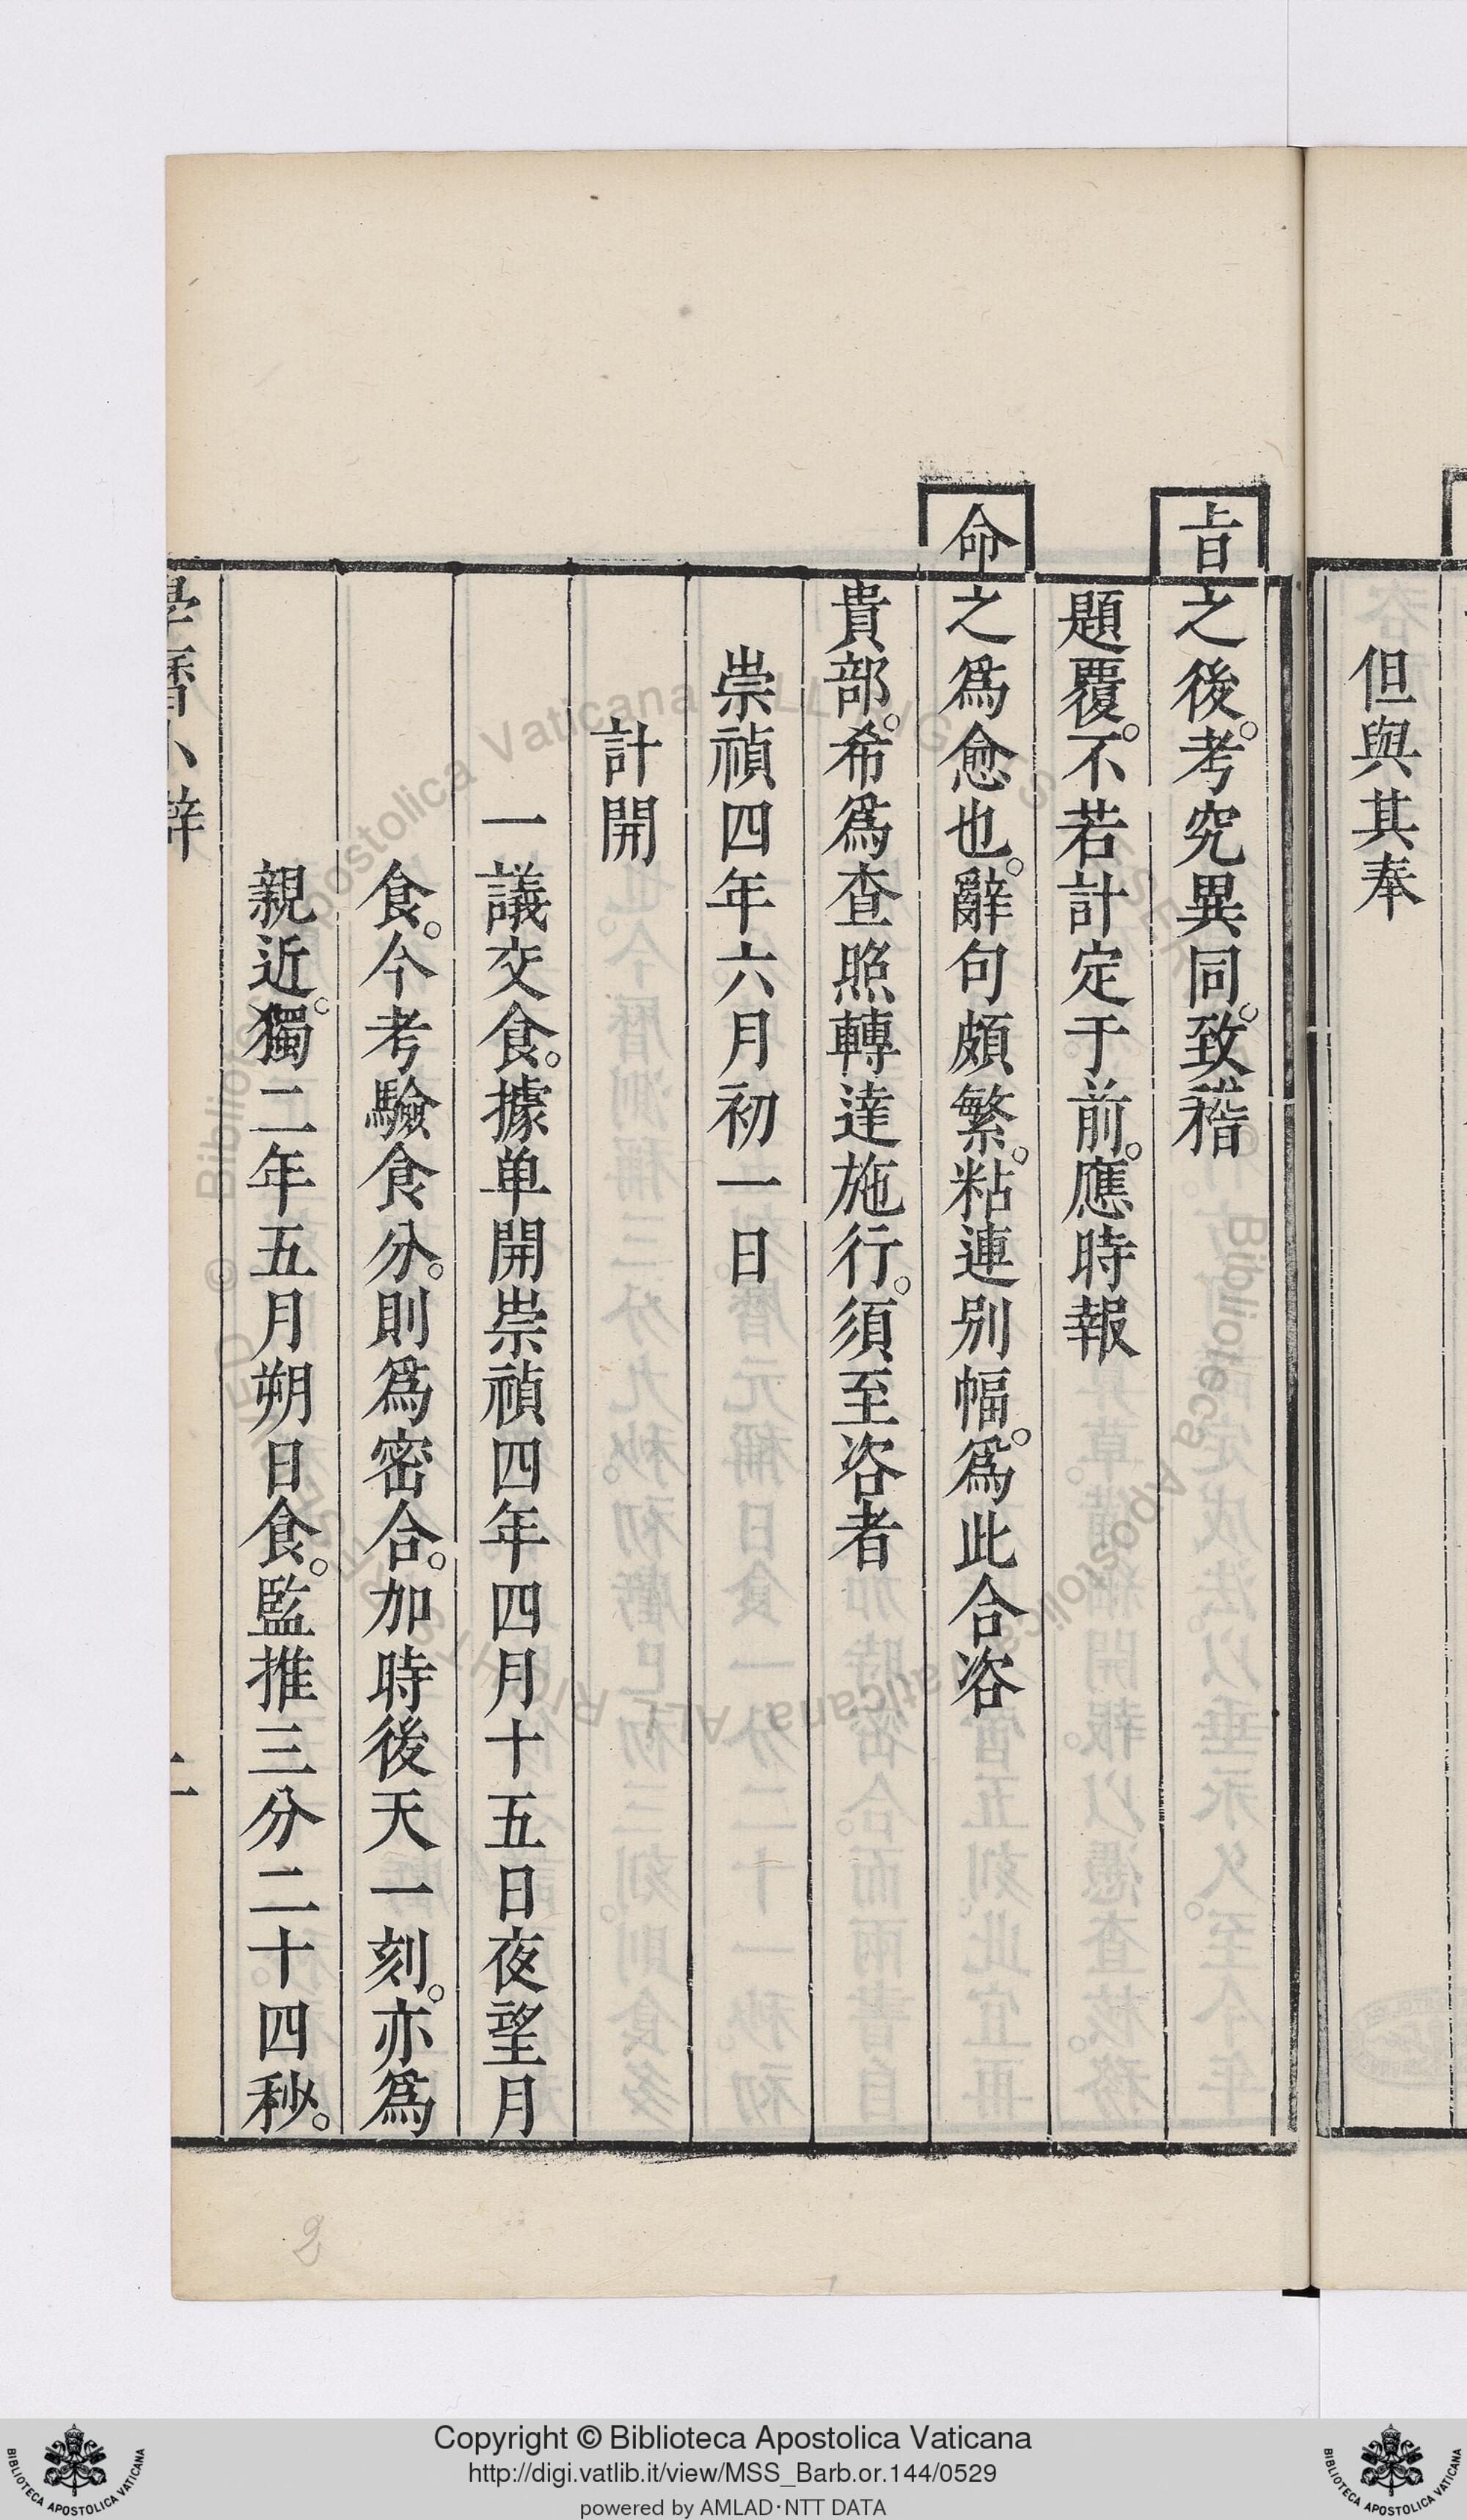 但與其奉
旨之後。考究異同。致稽
題覆。不若計定于前。應時報
命之爲愈也。辭句頗繁。粘連別幅。爲此合咨
貴部。希爲查照轉達施行。須至咨者
崇禎四年六月初一日
計開
一議交食。據单開崇禎四年四月十五日夜望月
食。今考驗食分。則爲密合。加時後天一刻。亦爲
親近。獨二年五月朔日食。監推三分二十四秒。
學曆小辯
Copyright © Biblioteca Apostolica Vaticana
http://digi.vatlib.it/view/MSS_Barb.or.144/0529
powered by AMLAD·NTT DATA
BIBLIOTECA APOSTOLICA VATICANA
BIBLIOTECA APOSTOLICA VATICANA